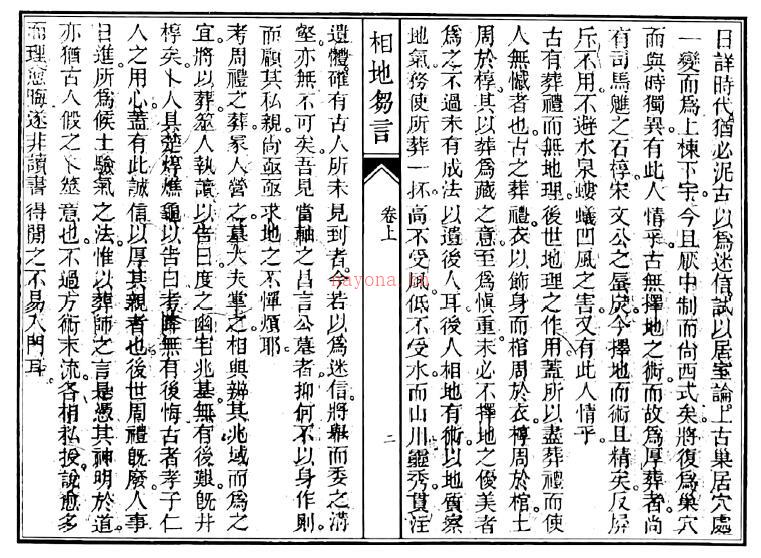 日詳時代猶必泥古以爲迷信試以居室論上古巢居穴處
一變而爲上棟下宇今且厭中制而尙西式矣將復爲巢穴
而與時獨異有此人情乎古無擇地之術而故爲厚葬者尚
有司馬魋之石椁宋文公之蜃炭今擇地而術且精矣反屏
斥不用不避水泉螻蟻凹風之害又有此人情乎
古有葬禮而無地理後世地理之作用蓋所以盡葬禮而使
人無憾者也古之葬禮衣以飾身而棺周於衣椁周於棺土
周於椁其以葬爲藏之意至爲愼重未必不擇地之優美者
爲之不過未有成法以遺後人耳後人相地有術以地質察
地氣務使所葬一抔高不受風低不受水而山川靈秀貫注
相地芻言
卷上
二
遺體確有古人所未見到者今若以爲迷信將舉而委之溝
壑亦無不可矣吾見當軸之昌言公墓者抑何不以身作則
而顧其私親尚亟亟求地之不憚煩耶
考周禮之葬冢人營之墓大夫掌之相與辨其兆域而爲之
宜將以葬筮人執讀以告曰度之幽宅兆基無有後艱旣井
椁矣卜人具楚焞燋龜以告曰考降無有後悔古者孝子仁
人之用心蓋有此誠信以厚其親者也後世周禮旣廢人事
日進所爲候土驗氣之法惟以葬師之言是憑其神明於道
亦猶古人假之卜筮意也不過方術末流各相私授說愈多
而理愈晦遂非讀書得閒之不易入門耳
nayona.hk